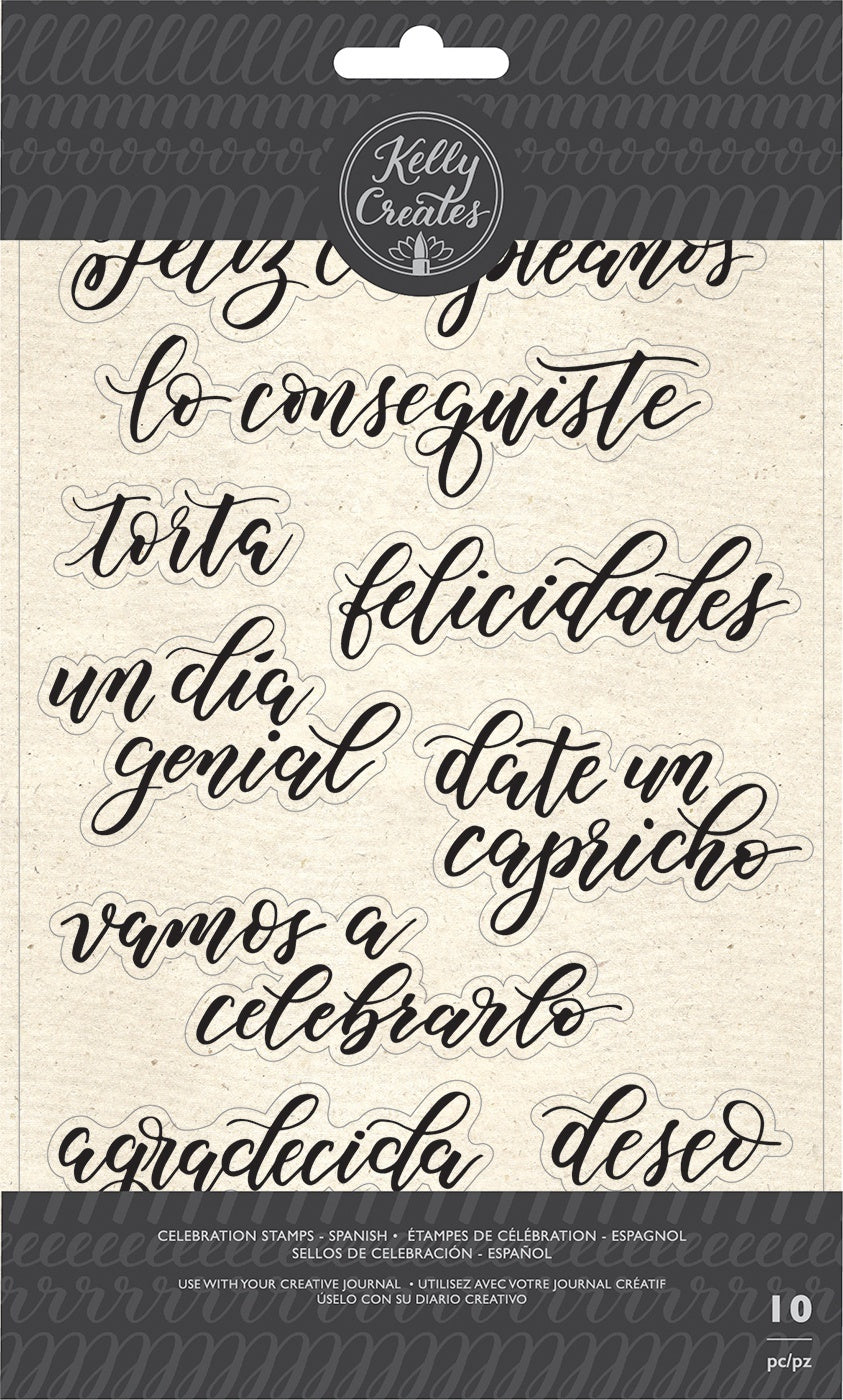 Kelly
Creates
Feliz
lo conseguiste
torta
felicidades
un día
genial
date un
capricho
vamos a
celebrarlo
agradecida
deseo
CELEBRATION STAMPS - SPANISH • ÉTAMPES DE CÉLÉBRATION - ESPAGNOL
SELLOS DE CELEBRACIÓN - ESPAÑOL
USE WITH YOUR CREATIVE JOURNAL • UTILISEZ AVEC VOTRE JOURNAL CRÉATIF
ÚSELO CON SU DIARIO CREATIVO
10
pc/pz